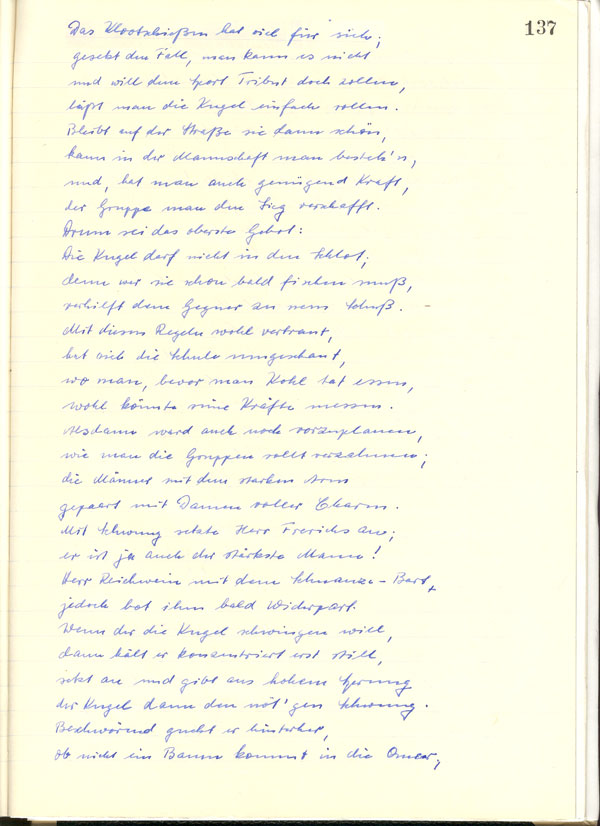 137
Das Klootschießen hat sich für sich;
gesetzt den Fall, man kann es nicht
und will dem Sport Tribut doch zollen,
läßt man die Kugel einfach rollen.
Bleibt auf der Straße sie dann schön,
kann in der Mannschaft man besteh'n,
und, hat man auch genügend Kraft,
der Gruppe man den Sieg verschafft.
Drum sei das oberste Gebot:
Die Kugel darf nicht in den Schlot;
denn wer sie schon bald fischen muß,
verhilft dem Gegner an nem Schuß.
Mit diesen Regeln wohl vertraut,
hat sich die Schule umgeschaut,
wo man, bevor man Kohl tat essen,
wohl könnte seine Kräfte messen.
Alsdann ward auch noch vorzuplanen,
wie man die Gruppen sollt verzahnen;
die Männer mit dem starken Arm
gepaart mit Damen voller Charm.
Mit Schwung setzte Herr Frerichs an;
er ist ja auch der stärkste Mann!
Herr Reichwein mit dem Schnauze-Bart,
jedoch bot ihm bald Widerpart.
Wenn der die Kugel schwingen will,
dann hält er konzentriert erst still,
setzt an und gibt aus hohem Sprung
der Kugel dann den nöt'gen Schwung.
Beschwörend guckt er hinterher,
ob nicht ein Baum kommt in die Quer,